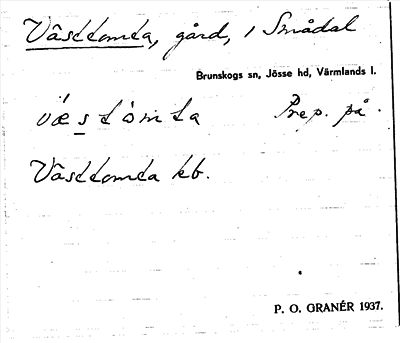 Västtomta, gård, i Smådal
Brunskogs sn, Jösse hd, Värmlands l.
væstòmta Prep. på.
Västtomta kb.
P. O. GRANÉR 1937.